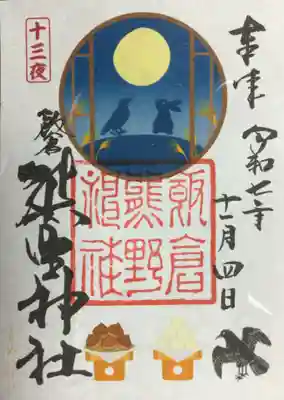 奉拝 令和七年
十一月四日
飯倉
熊野
神社
十三夜
飯倉
熊野神社